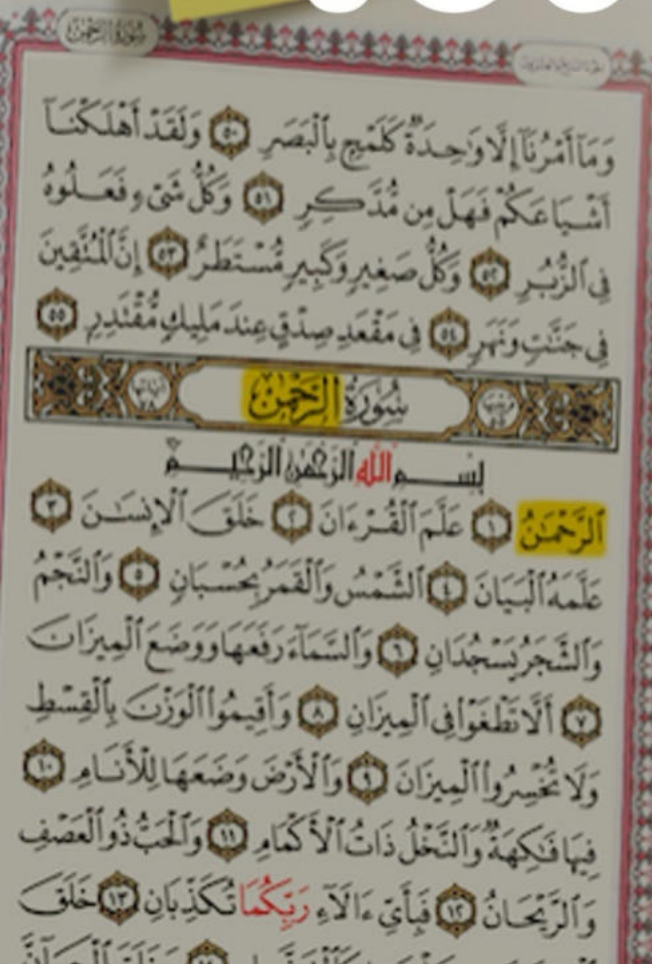 سُورَةُ الرَّحْمٰن
وَمَآ أَمْرُنَآ إِلَّا وَٰحِدَةٌ كَلَمْحٍۭ بِٱلْبَصَرِ ٥٠ وَلَقَدْ أَهْلَكْنَآ
أَشْيَاعَكُمْ فَهَلْ مِن مُّدَّكِرٍ ٥١ وَكُلُّ شَىْءٍ فَعَلُوهُ
فِى ٱلزُّبُرِ ٥٢ وَكُلُّ صَغِيرٍ وَكَبِيرٍ مُّسْتَطَرٌ ٥٣ إِنَّ ٱلْمُتَّقِينَ
فِى جَنَّٰتٍ وَنَهَرٍ ٥٤ فِى مَقْعَدِ صِدْقٍ عِندَ مَلِيكٍ مُّقْتَدِرٍۭ ٥٥
سُورَةُ الرَّحْمٰن
بِسْمِ ٱللَّهِ ٱلرَّحْمَٰنِ ٱلرَّحِيمِ
ٱلرَّحْمَٰنُ ١ عَلَّمَ ٱلْقُرْءَانَ ٢ خَلَقَ ٱلْإِنسَٰنَ ٣
عَلَّمَهُ ٱلْبَيَانَ ٤ ٱلشَّمْسُ وَٱلْقَمَرُ بِحُسْبَانٍ ٥ وَٱلنَّجْمُ
وَٱلشَّجَرُ يَسْجُدَانِ ٦ وَٱلسَّمَآءَ رَفَعَهَا وَوَضَعَ ٱلْمِيزَانَ
٧ أَلَّا تَطْغَوْا۟ فِى ٱلْمِيزَانِ ٨ وَأَقِيمُوا۟ ٱلْوَزْنَ بِٱلْقِسْطِ
وَلَا تُخْسِرُوا۟ ٱلْمِيزَانَ ٩ وَٱلْأَرْضَ وَضَعَهَا لِلْأَنَامِ ١٠
فِيهَا فَٰكِهَةٌ وَٱلنَّخْلُ ذَاتُ ٱلْأَكْمَامِ ١١ وَٱلْحَبُّ ذُو ٱلْعَصْفِ
وَٱلرَّيْحَانُ ١٢ فَبِأَىِّ ءَالَآءِ رَبِّكُمَا تُكَذِّبَانِ ١٣ خَلَقَ